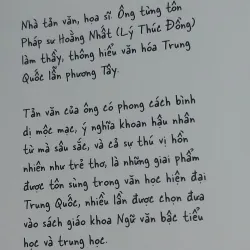 Nhà tản văn, họa sĩ. Ông từng tôn
Pháp sư Hoằng Nhất (Lý Thúc Đồng)
làm thầy, thông hiểu văn hóa Trung
Quốc lẫn phương Tây.
Tản văn của ông có phong cách bình
dị mộc mạc, ý nghĩa khoan hậu nhân
từ mà sâu sắc, và cả sự thú vị hồn
nhiên như trẻ thơ, là những giai phẩm
được tôn sùng trong văn học hiện đại
Trung Quốc, nhiều lần được chọn đưa
vào sách giáo khoa Ngữ văn bậc tiểu
học và trung học.